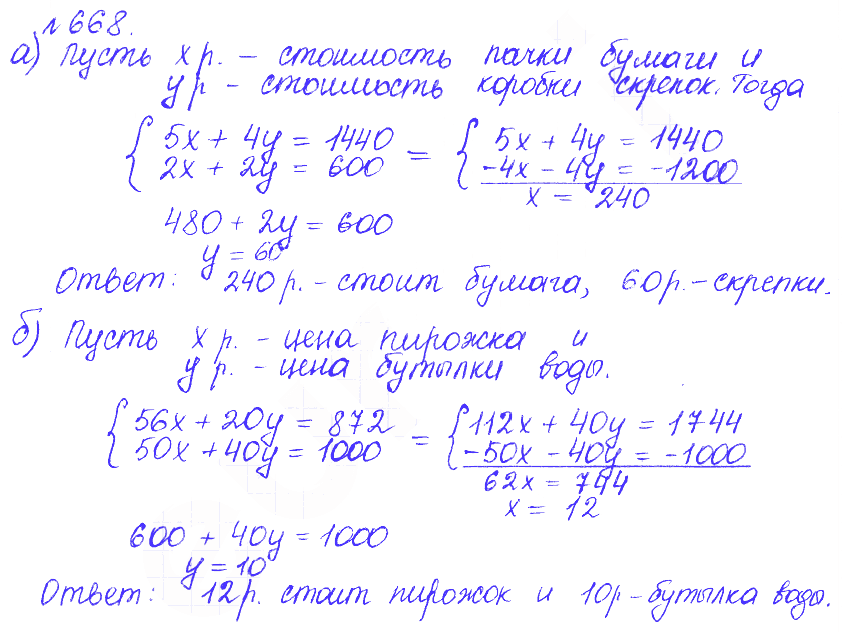 №668.
а) Пусть х р. – стоимость пачки бумаги и
у р – стоимость коробки скрепок. Тогда
{ 5x + 4y = 1440 = { 5x + 4y = 1440
2x + 2y = 600 -4x - 4y = -1200
x = 240
480 + 2y = 600
y = 60
Ответ: 240 р. – стоит бумага, 60р. – скрепки.
б) Пусть х р. – цена пирожка и
у р. – цена бутылки воды.
{ 56x + 20y = 872 = { 112x + 40y = 1744
50x + 40y = 1000 -50x - 40y = -1000
62x = 744
x = 12
600 + 40y = 1000
y = 10
Ответ: 12р. стоит пирожок и 10р – бутылка воды.